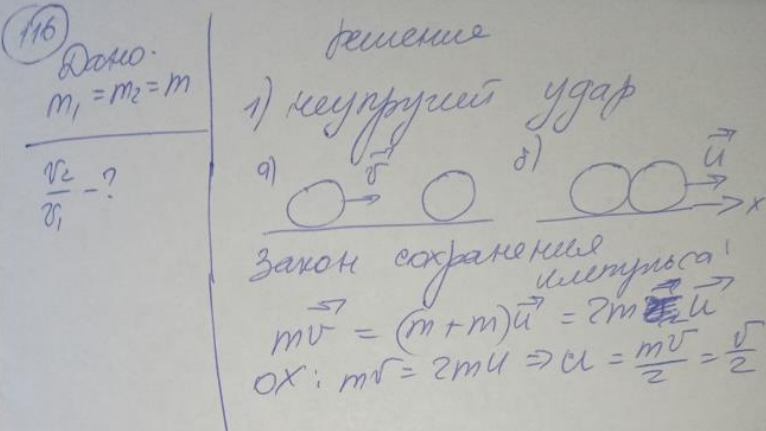 116
Дано:
m₁ = m₂ = m
v₂/v₁ - ?
Решение
1) неупругий удар
а) v⃗ б) u⃗
x
Закон сохранения
импульса!
mv⃗ = (m+m)u⃗ = 2m u⃗
OX: mv = 2mu ⇒ u = mv/2 = v/2